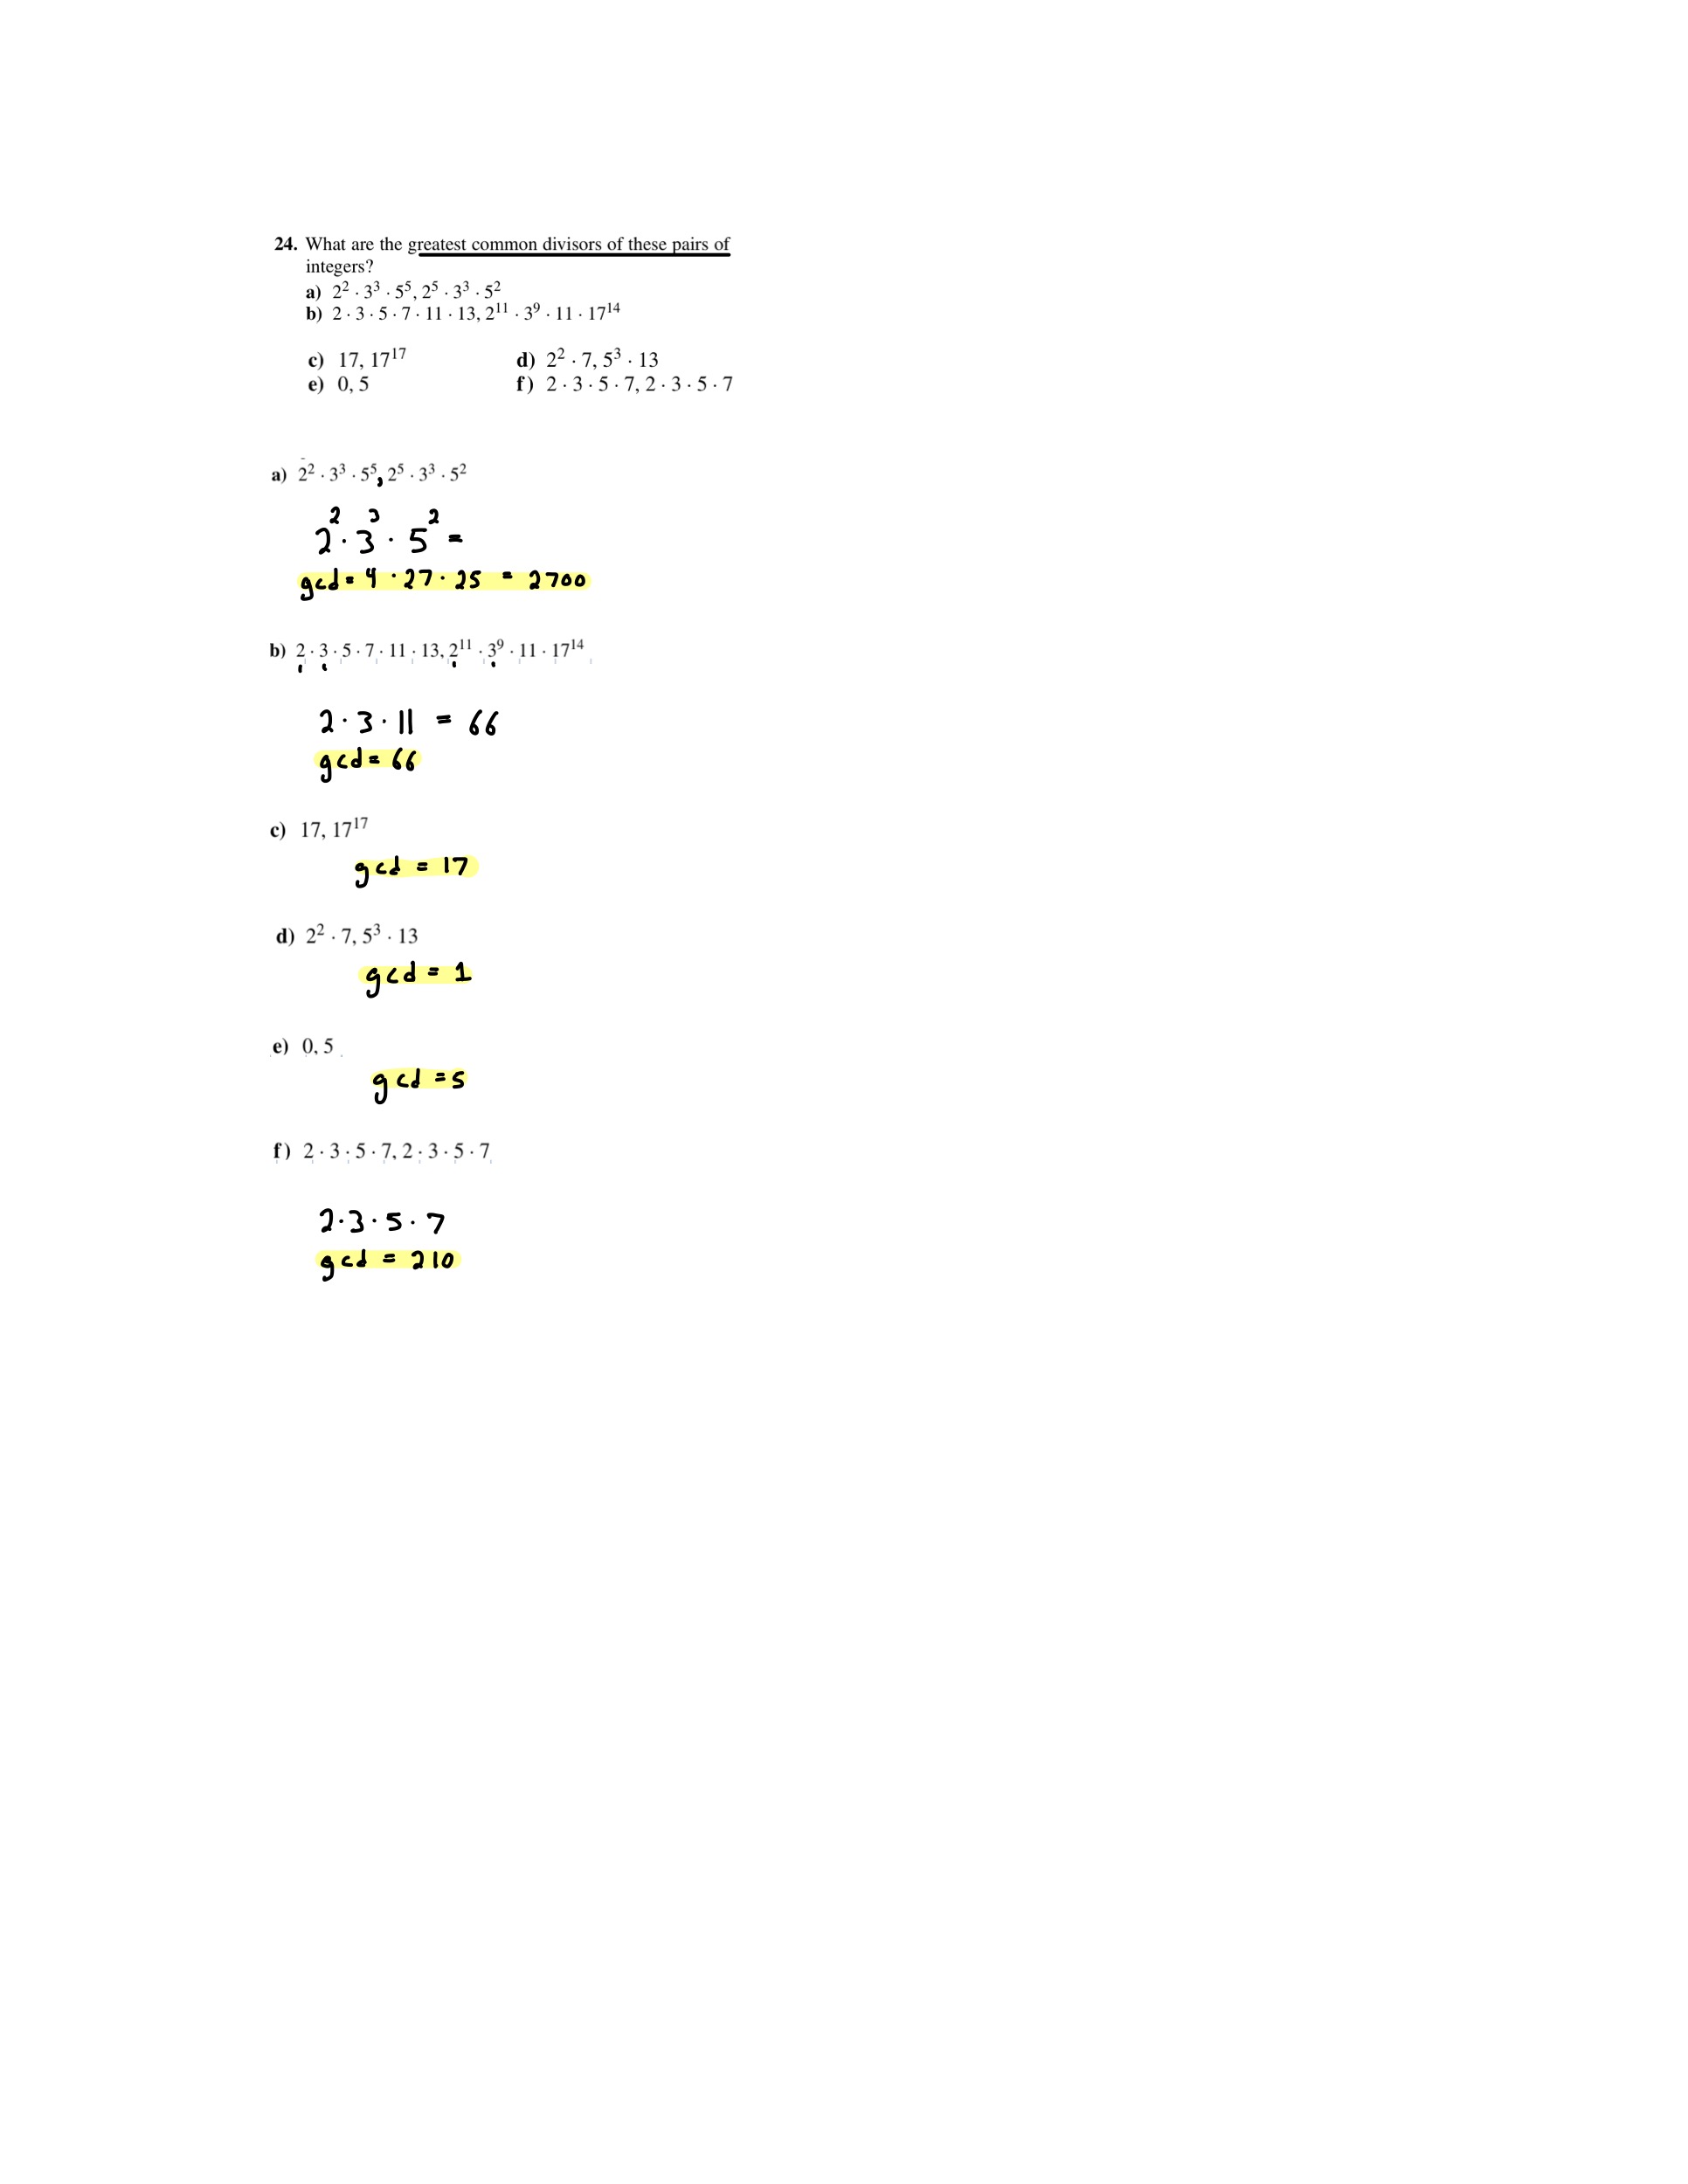 24. What are the greatest common divisors of these pairs of
integers?
a) 2² · 3³ · 5⁵, 2⁵ · 3³ · 5²
b) 2 · 3 · 5 · 7 · 11 · 13, 2¹¹ · 3⁹ · 11 · 17¹⁴
c) 17, 17¹⁷ d) 2² · 7, 5³ · 13
e) 0, 5 f) 2 · 3 · 5 · 7, 2 · 3 · 5 · 7
a) 2² · 3³ · 5⁵, 2⁵ · 3³ · 5²
2² · 3³ · 5² =
gcd = 4 · 27 · 25 = 2700
b) 2 · 3 · 5 · 7 · 11 · 13, 2¹¹ · 3⁹ · 11 · 17¹⁴
2 · 3 · 11 = 66
gcd = 66
c) 17, 17¹⁷
gcd = 17
d) 2² · 7, 5³ · 13
gcd = 1
e) 0, 5
gcd = 5
f) 2 · 3 · 5 · 7, 2 · 3 · 5 · 7
2 · 3 · 5 · 7
gcd = 210